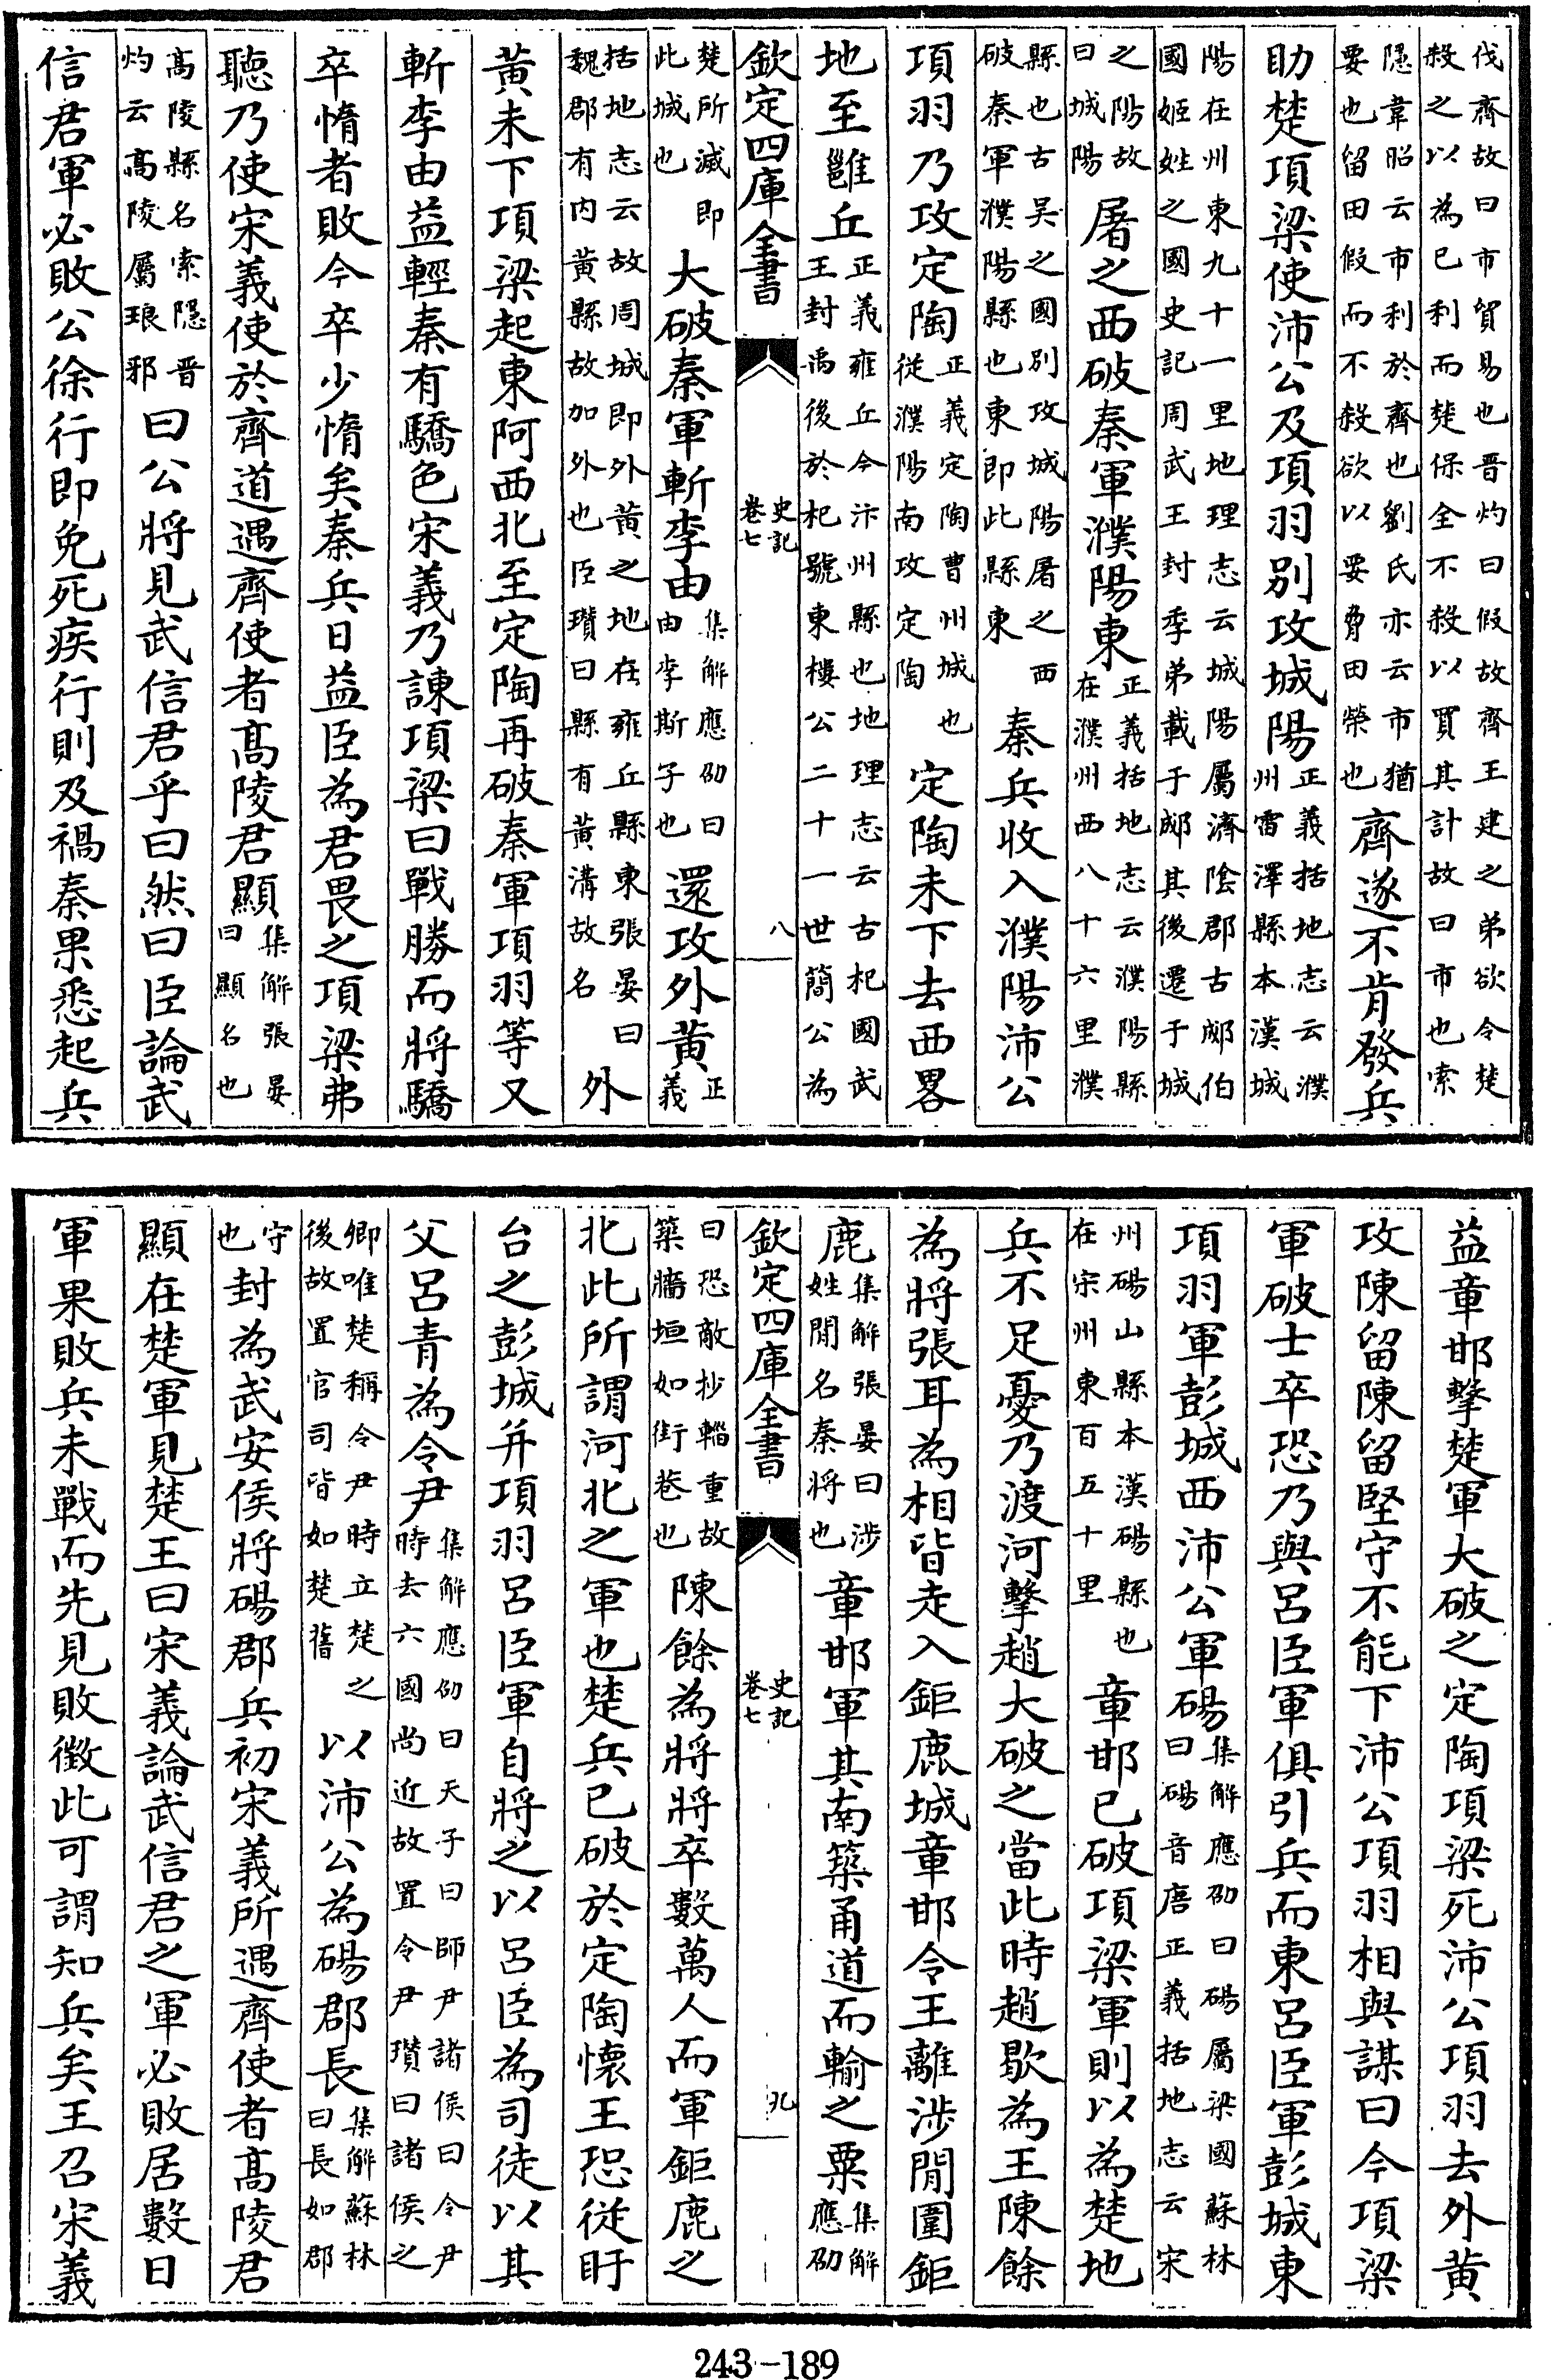 伐齊故曰市貿易也晋灼曰假故齊王建之弟欲令楚
殺之以為已利而楚保全不殺以買其計故曰市也索
隱韋昭云市利於齊也劉氏亦云市猶
要也留田假而不殺欲以要脅田榮也
齊遂不肯發兵
助楚項梁使沛公及項羽别攻城陽
正義括地志云濮
州雷澤縣本漢城
陽在州東九十一里地理志云城陽屬濟隂郡古郕伯
國姬姓之國史記周武王封季弟載于郕其後遷于城
之陽故
曰城陽
屠之西破秦軍濮陽東
正義括地志云濮陽縣
在濮州西八十六里濮
縣也古吴之國别攻城陽屠之西
破秦軍濮陽縣也東即此縣東
秦兵收入濮陽沛公
項羽乃攻定陶
正義定陶曹州城也
從濮陽南攻定陶
定陶未下去西畧
地至雝丘
正義雍丘今汴州縣也地理志云古杞國武
王封禹後於杞號東樓公二十一世簡公為
欽定四庫全書
史記
卷七
八
楚所滅即
此城也
大破秦軍斬李由
集解應劭曰
由李斯子也
還攻外黄
正
義
括地志云故周城即外黄之地在雍丘縣東張晏曰
魏郡有内黄縣故加外也臣瓉曰縣有黄溝故名
外
黄未下項梁起東阿西北至定陶再破秦軍項羽等又
斬李由益輕秦有驕色宋義乃諫項梁曰戰勝而將驕
卒惰者敗今卒少惰矣秦兵日益臣為君畏之項梁弗
聽乃使宋義使於齊道遇齊使者髙陵君顯
集解張晏
曰顯名也
髙陵縣名索隱晋
灼云髙陵屬琅邪
曰公將見武信君乎曰然曰臣論武
信君軍必敗公徐行即免死疾行則及禍秦果悉起兵
益章邯擊楚軍大破之定陶項梁死沛公項羽去外黄
攻陳留陳留堅守不能下沛公項羽相與謀曰今項梁
軍破士卒恐乃與吕臣軍俱引兵而東吕臣軍彭城東
項羽軍彭城西沛公軍碭
集解應劭曰碭屬梁國蘇林
曰碭音唐正義括地志云宋
州碭山縣本漢碭縣也
在宋州東百五十里
章邯已破項梁軍則以為楚地
兵不足憂乃渡河擊趙大破之當此時趙歇為王陳餘
為將張耳為相皆走入鉅鹿城章邯令王離涉閒圍鉅
鹿
集解張晏曰涉
姓閒名秦將也
章邯軍其南築甬道而輸之粟
集解
應劭
欽定四庫全書
史記
卷七
九
曰恐敵抄輜重故
築牆垣如街巷也
陳餘為將將卒數萬人而軍鉅鹿之
北此所謂河北之軍也楚兵已破於定陶懐王恐從盱
台之彭城并項羽吕臣軍自將之以吕臣為司徒以其
父吕青為令尹
集解應劭曰天子曰師尹諸侯曰令尹
時去六國尚近故置令尹瓉曰諸侯之
卿唯楚稱令尹時立楚之
後故置官司皆如楚舊
以沛公為碭郡長
集解蘇林
曰長如郡
守
也
封為武安侯將碭郡兵初宋義所遇齊使者髙陵君
顯在楚軍見楚王曰宋義論武信君之軍必敗居數日
軍果敗兵未戰而先見敗徴此可謂知兵矣王召宋義
243-189